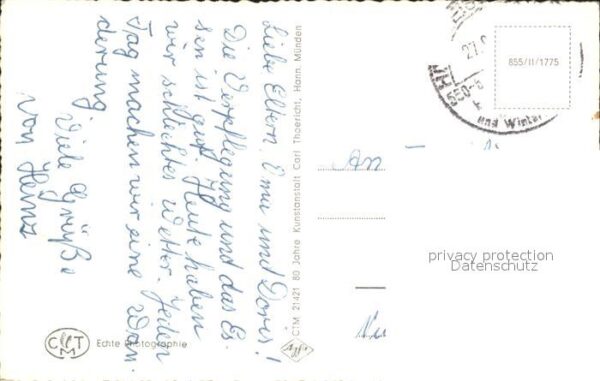 Liebe Eltern, Oma und Doris!
Die Verpflegung und das Es-
sen ist gut. Heute haben
wir schlechtes Wetter. Jeden
Tag machen wir eine Wan-
derung.
Viele Grüße
von Heinz
CTM 21421 80 Jahre Kunstanstalt Carl Thoericht, Hann. Münden
CTM
Echte Photographie
27.
855/II/1775
und Winter
An
privacy protection
Datenschutz